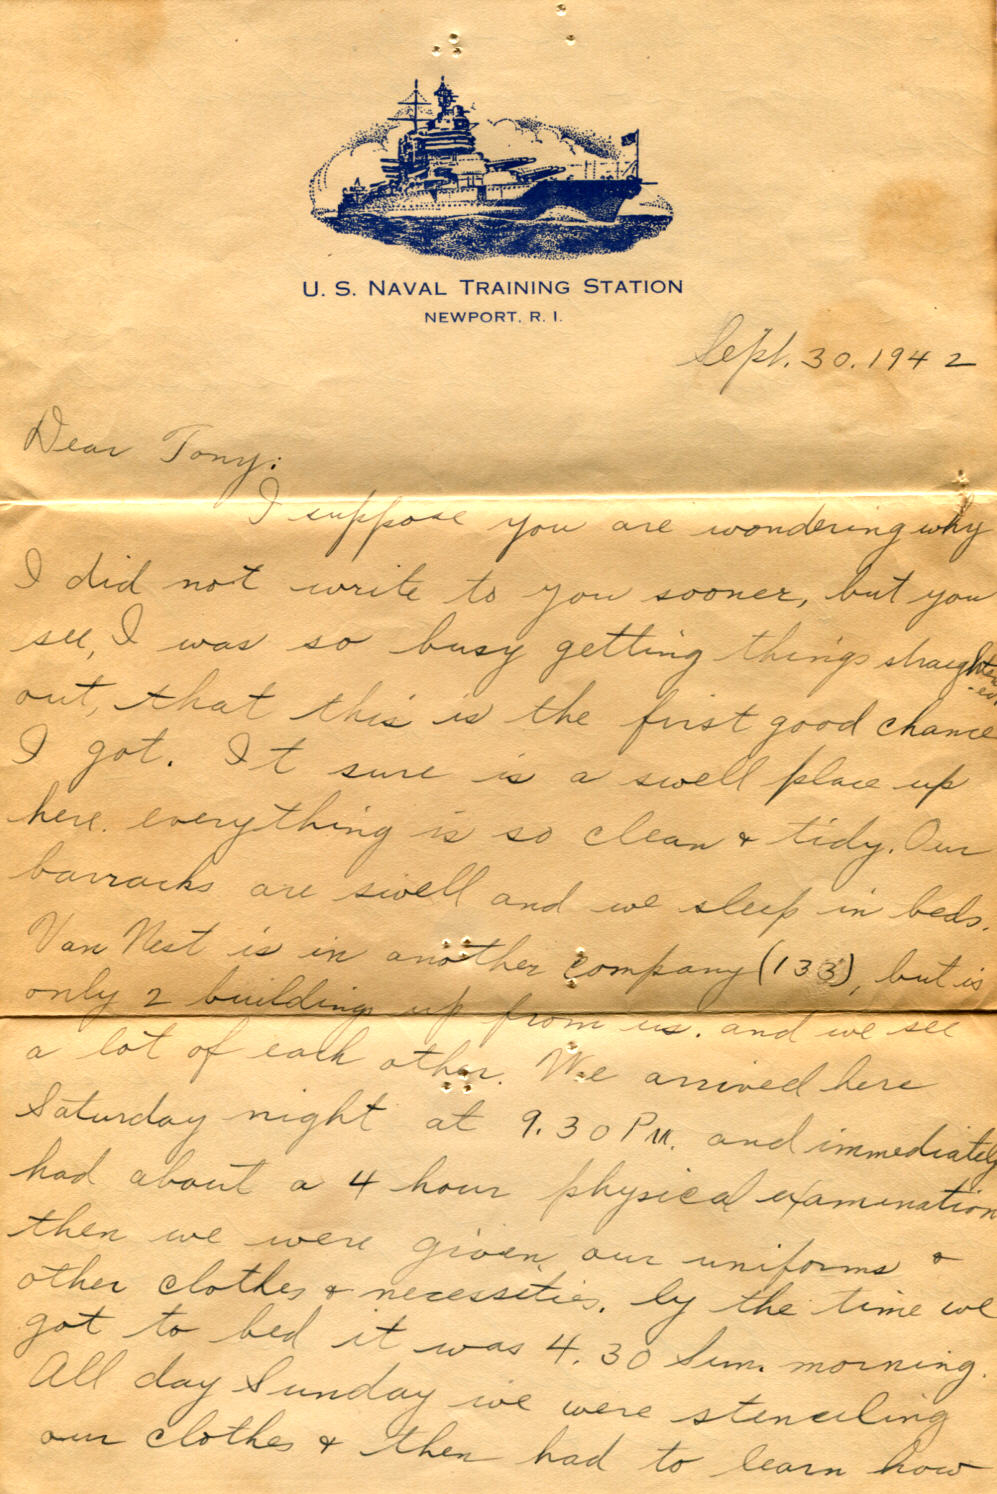 U. S. NAVAL TRAINING STATION
NEWPORT, R. I.
Sept. 30. 1942
Dear Tony:
I suppose you are wondering why
I did not write to you sooner, but you
see, I was so busy getting things straighten-ed
out, that this is the first good chance
I got. It sure is a swell place up
here. everything is so clean & tidy. Our
barracks are swell and we sleep in beds.
Van Nest is in another company (133), but is
only 2 buildings up from us. and we see
a lot of each other. We arrived here
Saturday night at 9.30 P.M. and immediately
had about a 4 hour physical examination
then we were given our uniforms &
other clothes & necessities. by the time we
got to bed it was 4.30 Sun. morning.
All day Sunday we were stenciling
our clothes & then had to learn how